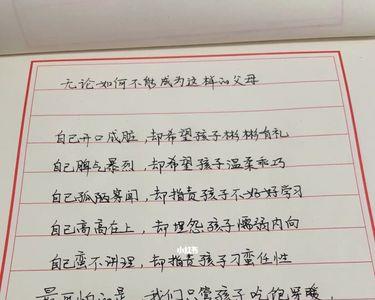 无论如何不能成为这样的父母
自己开口成脏，却希望孩子彬彬有礼
自己脾气暴烈，却希望孩子温柔乖巧
自己孤陋寡闻，却指责孩子不好好学习
自己高高在上，却埋怨孩子懦弱内向
小红书
自己蛮不讲理，却指责孩子刁蛮任性
最可怕的是，我们只管孩子吃饱穿暖